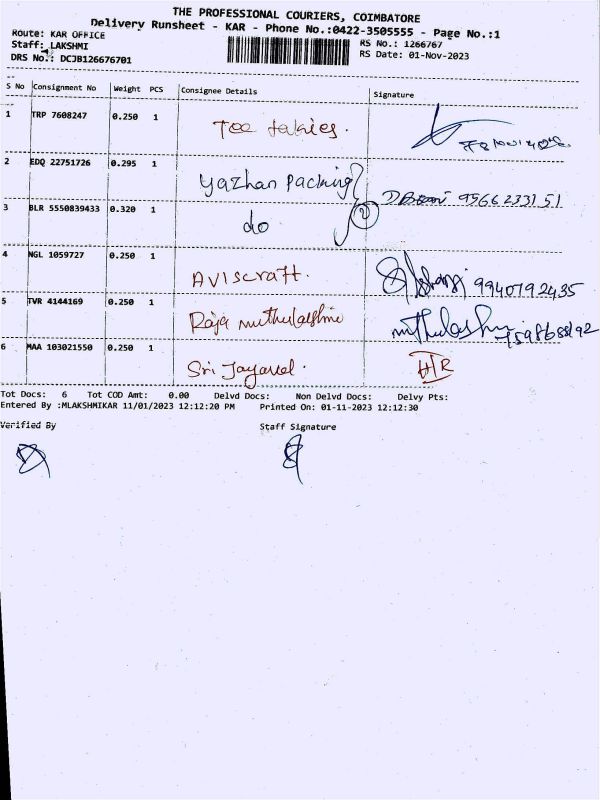 THE PROFESSIONAL COURIERS, COIMBATORE
Delivery Runsheet - KAR - Phone No.:0422-3505555 - Page No.:1
Route: KAR OFFICE
RS No.: 1266767
Staff: LAKSHMI
RS Date: 01-Nov-2023
DRS No.: DCJB126676701
S No Consignment No Weight PCS Consignee Details Signature
1 TRP 7608247 0.250 1
2 EDQ 22751726 0.295 1 Yazhan Packing 9566233151
3 BLR 5550839433 0.320 1 do 2
4 NGL 1059727 0.250 1 Aviscraft. 9940792435
5 TVR 4144169 0.250 1 Raja muthulakshmi
6 MAA 103021550 0.250 1 Sri Jayavel. H/R
Tot Docs: 6 Tot COD Amt: 0.00 Delvd Docs: Non Delvd Docs: Delvy Pts:
Entered By :MLAKSHMIKAR 11/01/2023 12:12:20 PM Printed On: 01-11-2023 12:12:30
Verified By Staff Signature